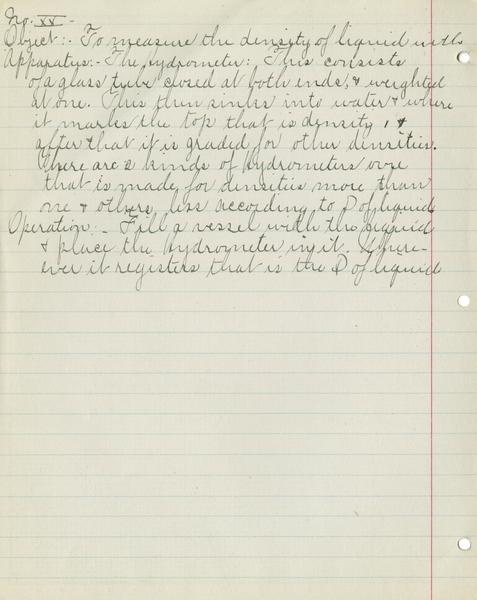 No. XX -
Object:- To measure the density of liquid with
Apparatus:- The hydrometer: This consists
of a glass tube closed at both ends, & weighted
at one. This then sinks into water & where
it marks the top that is density 1 &
after that it is graded for other densities.
There are 2 kinds of hydrometers one
that is made for densities more than
one & others less according to D of liquid
Operation:- Fill a vessel with the liquid
& place the hydrometer in it. Where-
ever it registers that is the D of liquid